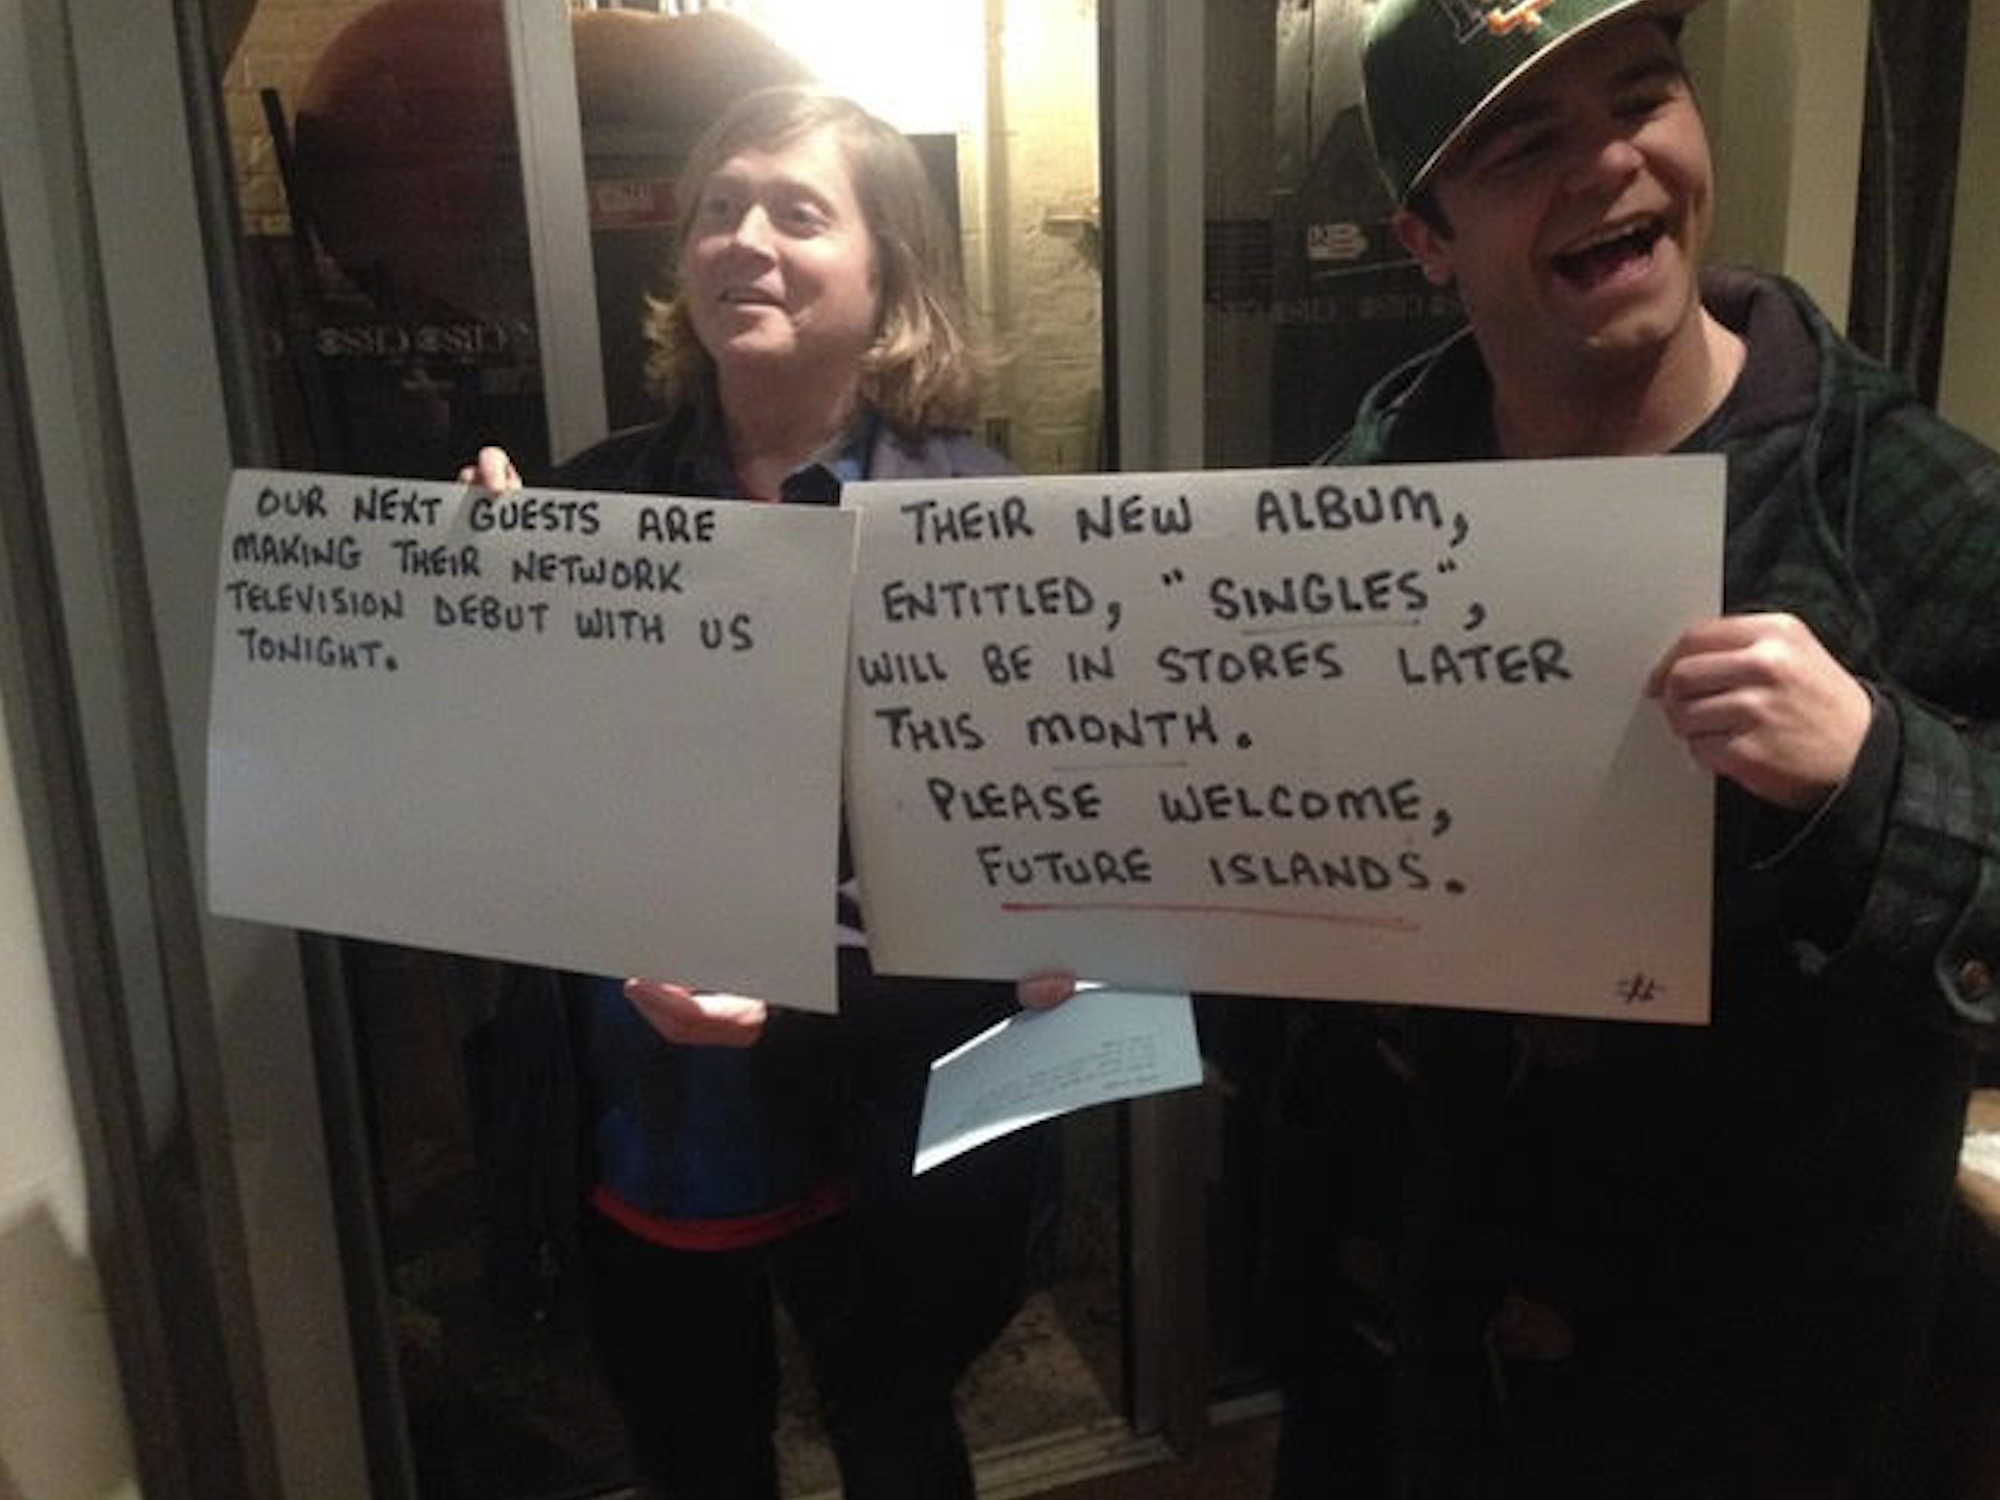 OUR NEXT GUESTS ARE
MAKING THEIR NETWORK
TELEVISION DEBUT WITH US
TONIGHT.
THEIR NEW ALBUM,
ENTITLED, "SINGLES",
WILL BE IN STORES LATER
THIS MONTH.
PLEASE WELCOME,
FUTURE ISLANDS.